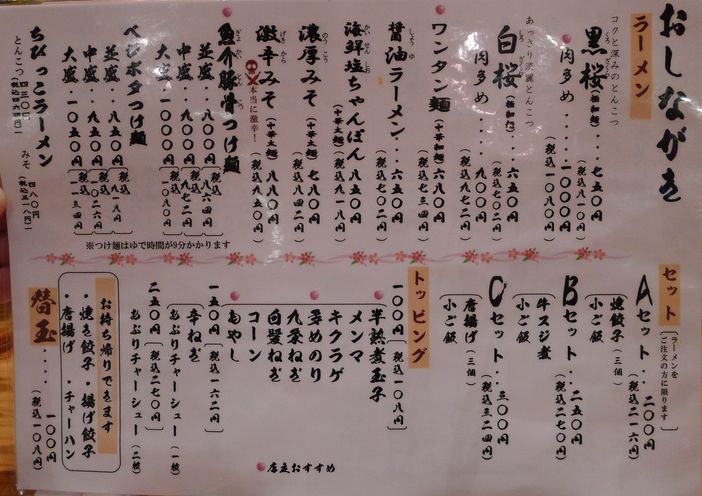 おしながき
ラーメン
コクと深みのとんこつ
黒桜(極細麺)‥七五〇円
(税込八一〇円)
肉多め‥‥一〇〇〇円
あっさり淡麗とんこつ
白桜(極細麺)‥六五〇円
(税込七〇二円)
肉多め‥‥九〇〇円
(税込九七二円)
ワンタン麺(中華細麺)六八〇円
醤油ラーメン‥‥六五〇円
(税込七〇二円)
海鮮塩ちゃんぽん八五〇円
(中華太麺)(税込九一八円)
濃厚みそ(中華太麺)七八〇円
(税込八四二円)
激辛みそ(中華太麺)八八〇円
本当に激辛!
(税込九五〇円)
魚介豚骨つけ麺
並盛‥八〇〇円(税込八六四円)
中盛‥九〇〇円(税込九七二円)
大盛‥一〇〇〇円
ベジポタつけ麺
並盛‥八五〇円
中盛‥九五〇円
大盛‥一〇五〇円
ちびっこラーメン
とんこつ
みそ 四八〇円
(税込五一八円)
※つけ麺はゆで時間が9分かかります
セット
ラーメンを
ご注文の方に限ります
Aセット‥二〇〇円
(税込二一六円)
焼餃子(三個)
小ご飯
Bセット‥二五〇円
(税込二七〇円)
牛スジ煮
小ご飯
Cセット‥三〇〇円
(税込三二四円)
唐揚げ(三個)
小ご飯
トッピング
一〇〇円(税込一〇八円)
半熟煮玉子
メンマ
キクラゲ
芽めのり
九条ねぎ
白髪ねぎ
コーン
もやし
一五〇円(税込一六二円)
辛ねぎ
あぶりチャーシュー(一枚)
二五〇円(税込二七〇円)
あぶりチャーシュー(二枚)
お持ち帰りできます
・焼き餃子・揚げ餃子
・唐揚げ・チャーハン
替玉‥‥一〇〇円
(税込一〇八円)
店主おすすめ